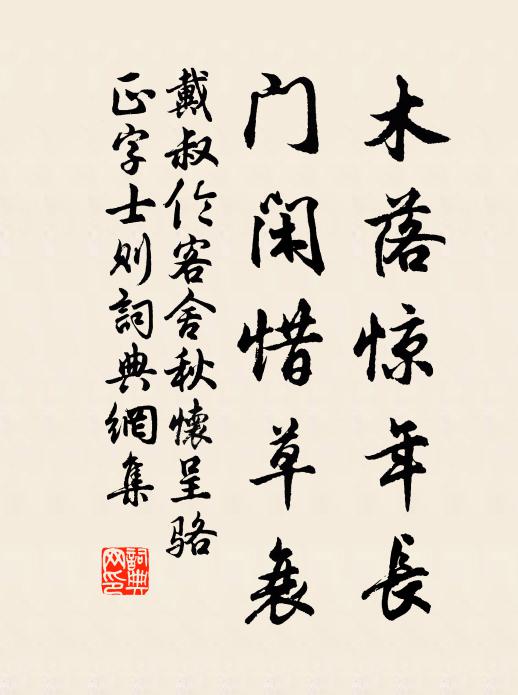 木落惊年长
门闲惜草衰
戴叔伦客舍秋怀呈骆
正字士则詞典網集
詞典
网印